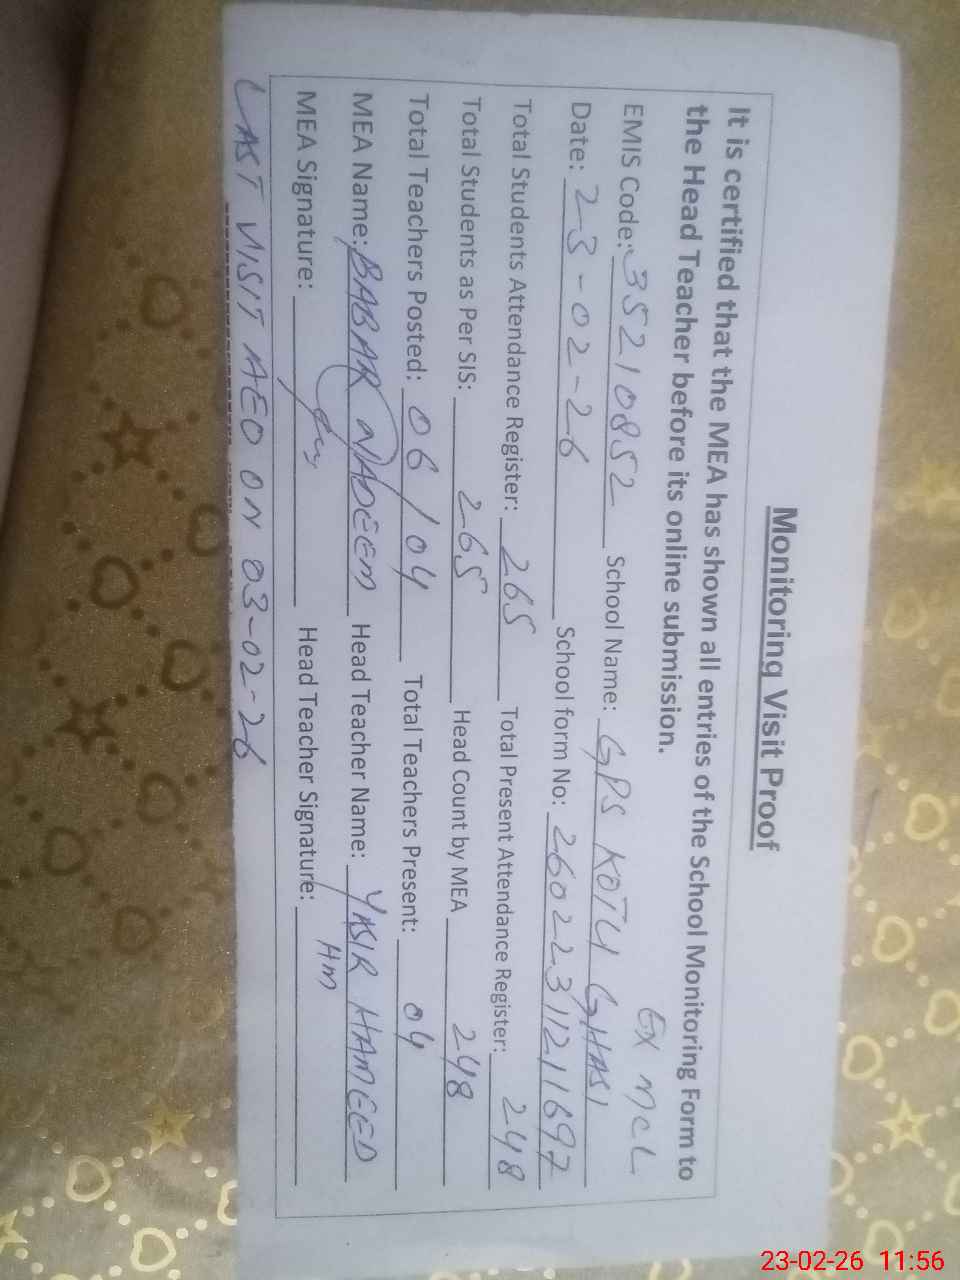 Monitoring Visit Proof
It is certified that the MEA has shown all entries of the School Monitoring Form to
the Head Teacher before its online submission.
EX MCL
EMIS Code: 35210852 School Name: GPS KOTLI GHASI
Date: 23-02-26 School form No: 260223112111697
Total Students Attendance Register: 265 Total Present Attendance Register: 248
Total Students as Per SIS: 265 Head Count by MEA 248
Total Teachers Posted: 06/04 Total Teachers Present: 04
MEA Name: BABAR NADEEM Head Teacher Name: YASIR HAMEED
MEA Signature: Head Teacher Signature: HM
LAST VISIT AEO ON 03-02-26
23-02-26 11:56